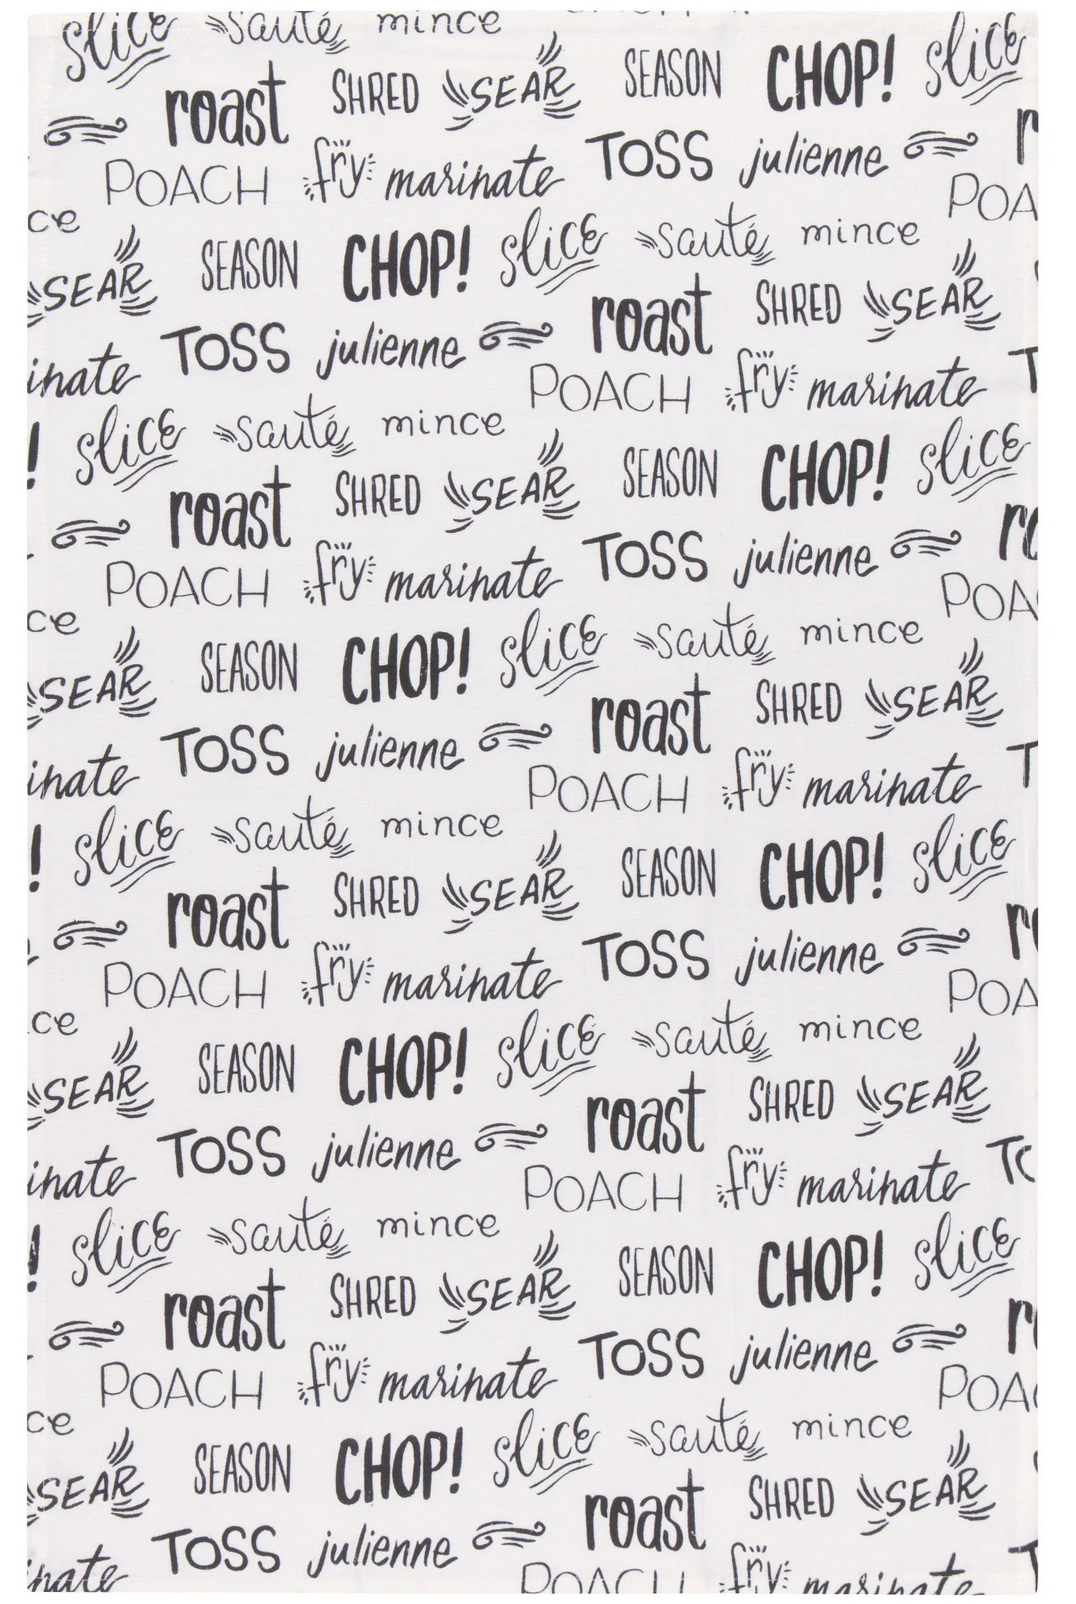 slice sauté mince
roast SHRED SEAR SEASON CHOP! slice
POACH fry marinate TOSS julienne
POA
ce
SEAR SEASON CHOP! slice sauté mince
inate TOSS julienne roast SHRED SEAR
POACH fry marinate T
! slice sauté mince
roast SHRED SEAR SEASON CHOP! slice
POACH fry marinate TOSS julienne ro
POA
ce
SEAR SEASON CHOP! slice sauté mince
inate TOSS julienne roast SHRED SEAR
POACH fry marinate T
! slice sauté mince
roast SHRED SEAR SEASON CHOP! slice
POACH fry marinate TOSS julienne r
POA
ce
SEAR SEASON CHOP! slice sauté mince
inate TOSS julienne roast SHRED SEAR
POACH fry marinate TO
! slice sauté mince
roast SHRED SEAR SEASON CHOP! slice
POACH fry marinate TOSS julienne r
POA
ce
SEAR SEASON CHOP! slice sauté mince
inate TOSS julienne roast SHRED SEAR
POACH fry marinate